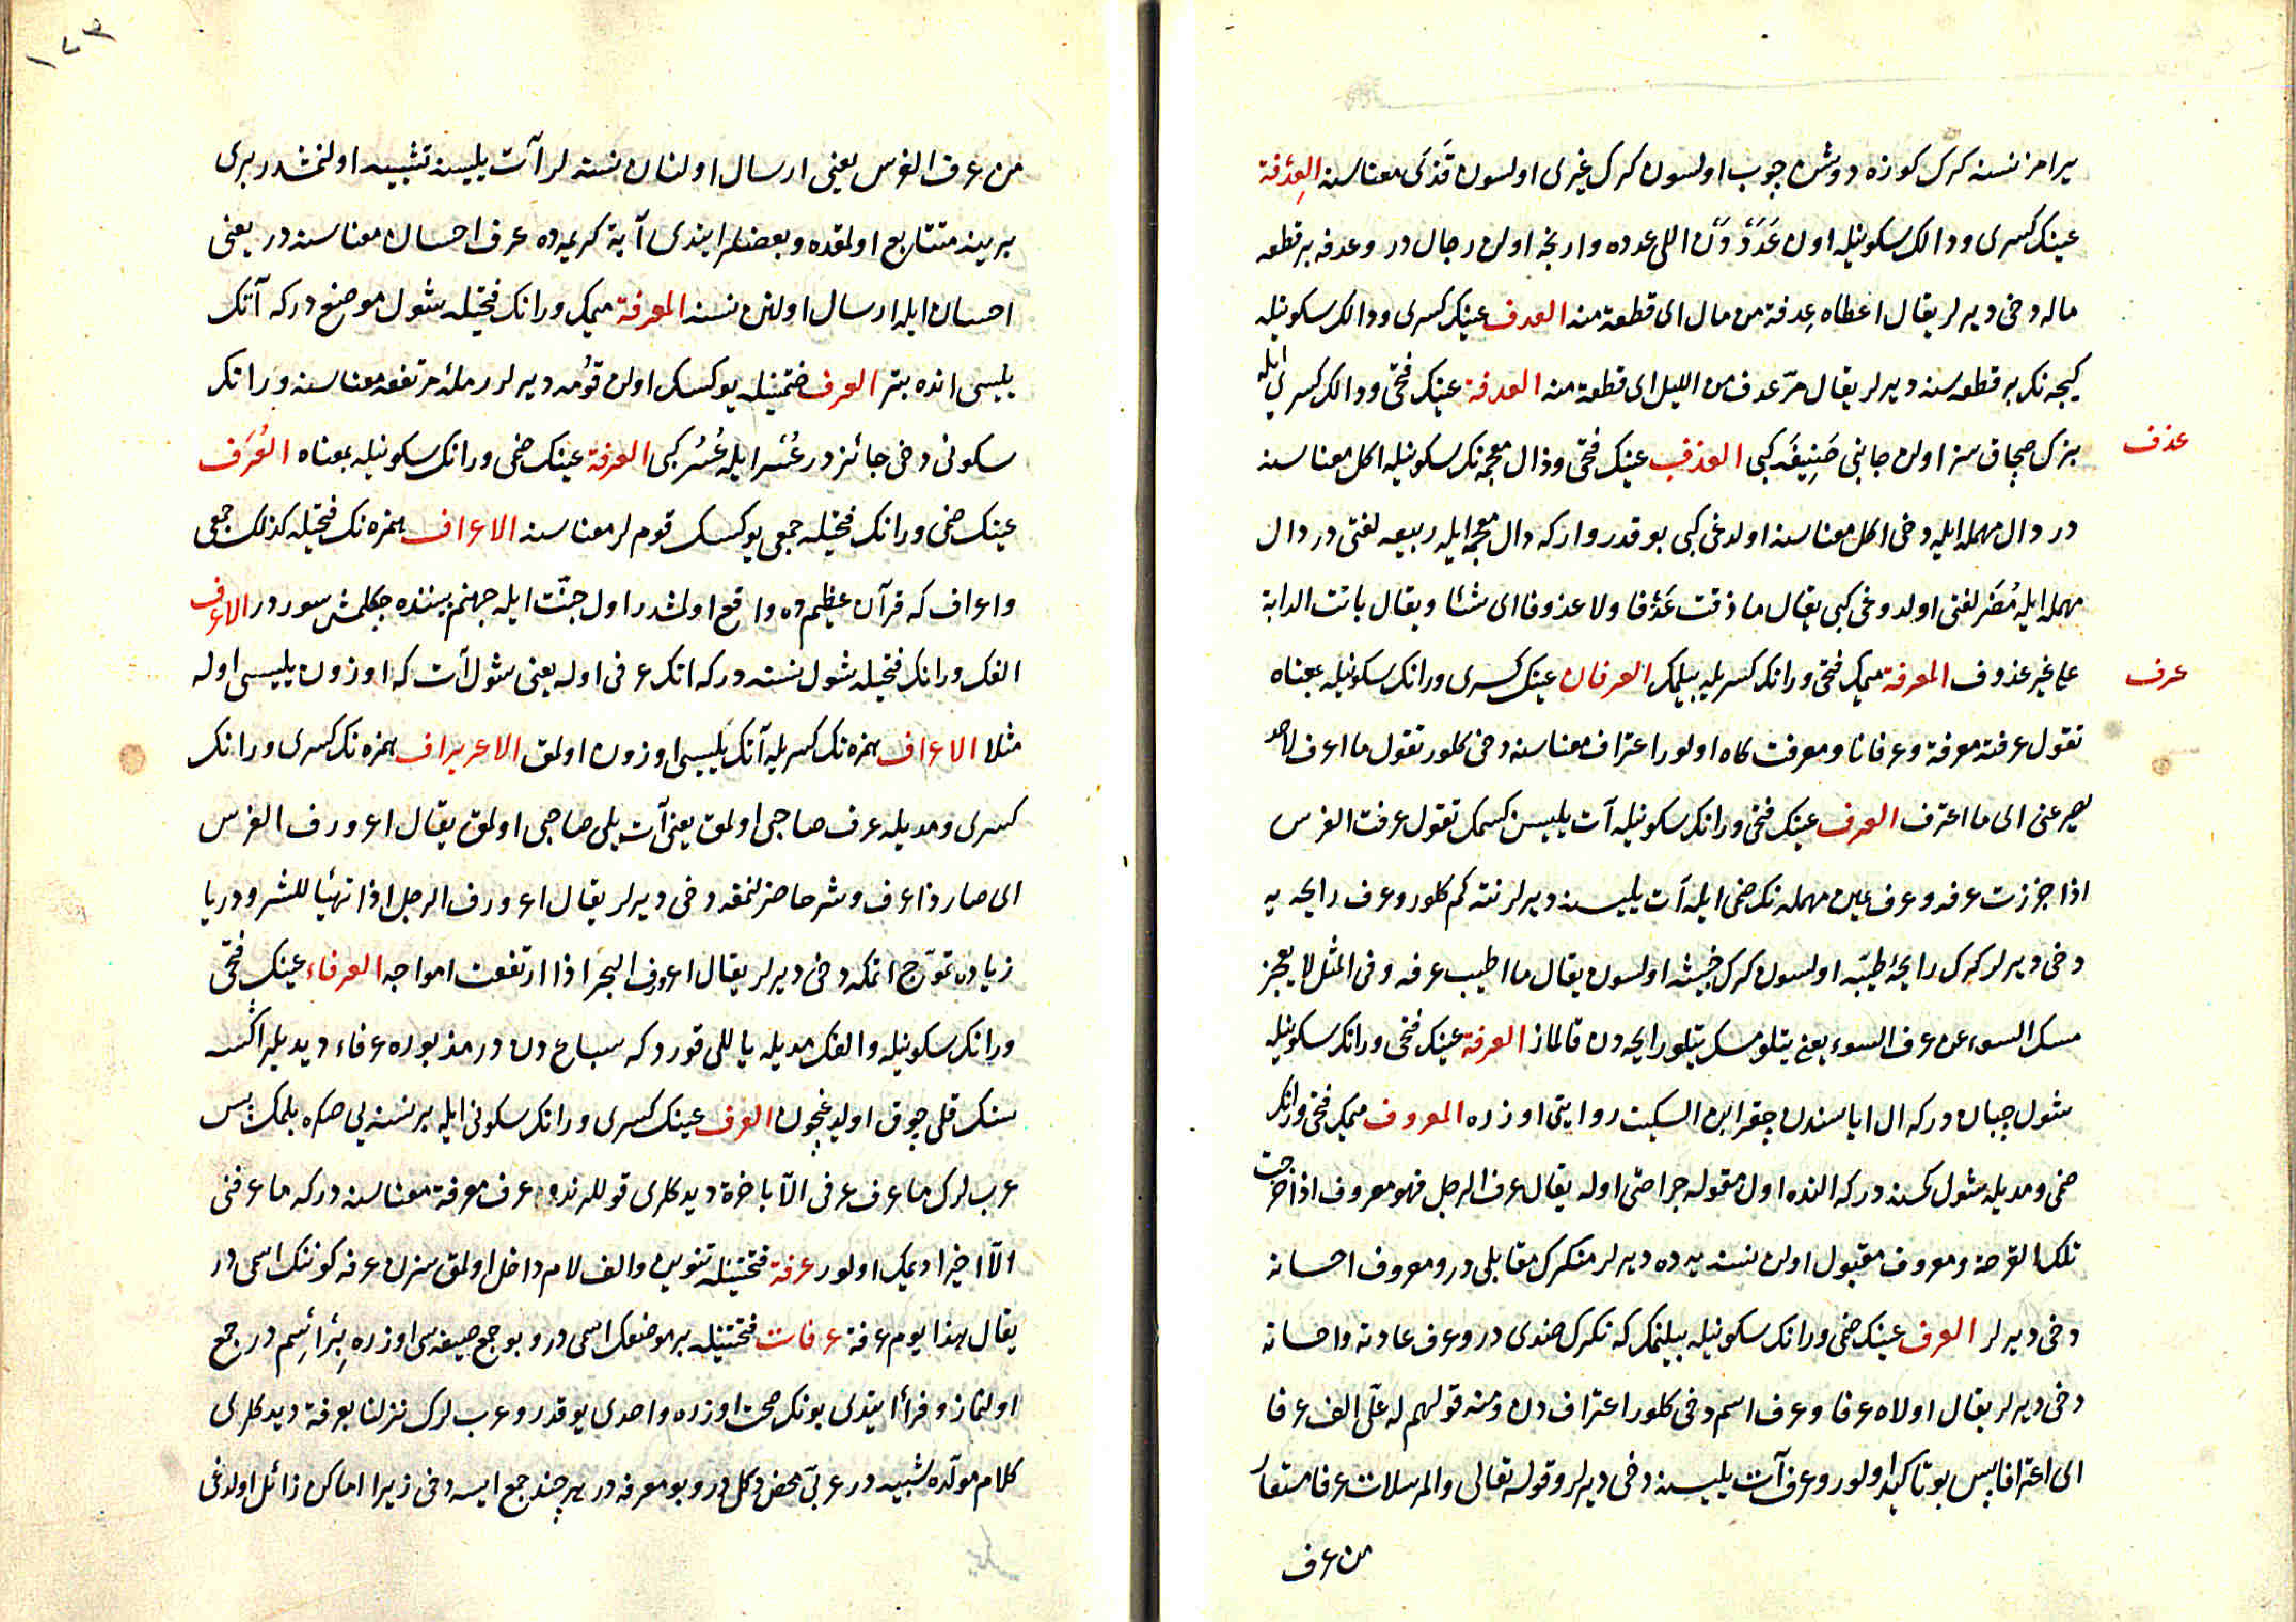 یرامز نسنه کرک کوزه دوشن چوب اولسون کرک غیری اولسون قَذَی معناسنه العِدْفة
عینک کسری ودالک سکونیله اون عَدَدْ دَن اللی عدده وارنجه اولن رجال در وعدفه بر قطعه
ماله دخی دیرلر یقال اعطاه عِدفة من مال ای قطعة منه العدف عینک کسری ودالک سکونیله
کیجه نک بر قطعه سنه دیرلر یقال مرّ عدف من اللیل ای قطعة منه العدفة عینک فتحی ودالک کسری ایله
بزک صچاق سز اولن جانبی صَنِیفَه کبی العذف عینک فتحی وذال معجمه نک سکونیله اکل معناسنه
عذف
در دال مهمله ایله دخی اکل معناسنه اولدغی کبی بو قدر وار که دال معجمه ایله ربیعه لغتی در دال
مهمله ایله مُضَر لغتی اولدوغی کبی یقال ما ذقت عَذْفا ولا عذوفا ای شئا ویقال باتت الدابة
علی غیر عذوف المعرفة میمک فتحی ورانک کسریله بیلمک العرفان عینک کسری ورانک سکونیله بمعناه
عرف
تقول عرفته معرفة وعرفانا ومعرفت کاه اولور اعتراف معناسنه دخی کلور تقول ما اعرف لاحد
یصرعنی ای ما اعترف العرف عینک فتحی ورانک سکونیله آت یلیسن کسمک تقول عرفت الفرس
اذا جززت عرفه وعرف عین مهمله نک ضمی ایله آت یلیسنه دیرلر نته کم کلور وعرف رایحه یه
دخی دیرلر کرک رایحۀ طیّبه اولسون کرک خبیثه اولسون یقال ما اطیب عرفه وفی المثل لا یعجز
مسک السوء عن عرف السوء یعنی یتلو مسک یتلو رایحه دن قالماز العرفة عینک فتحی ورانک سکونیله
شول چبان در که ال ایاسندن چقر ابن السکیت روایتی اوزره المعروف میمک فتحی ورانک
ضمی ومدیله شول کمسنه در که النده اول مقوله جراحتی اوله یقال عرف الرجل فهو معروف اذا خرجت
تلک القرحة ومعروف مقبول اولن نسنه یه ده دیرلر منکرک مقابلی در ومعروف احسانه
دخی دیرلر العرف عینک ضمی ورانک سکونیله بیلنمک که نکرک ضدی در وعرف عادته واحسانه
دخی دیرلر یقال اولاه عرفا وعرف اسم دخی کلور اعتراف دن ومنه قولهم له علّی الف عرفا
ای اعترافا پس بو تاکید اولور وعرف آت یلیسنه دخی دیرلر وقوله تعالی والمرسلات عرفا مستعار
من عرف
١٧٣
من عرف الفرس یعنی ارسال اولنان نسنه لر آت یلیسنه تشبیه اولنمشدر بری
برینه متتابع اولمقده وبعضلر ایتدی آیة کریمه ده عرف احسان معناسنه در یعنی
احسان ایله ارسال اولنن نسنه المعرفة میمک ورانک فتحیله شول موضع در که آتک
یلیسی انده بتر العرف ضمتینله یوکسک اولن قومه دیرلر رملۀ مرتفعه معناسنه ورانک
سکونی دخی جائز در عُسُر ایله عُسْر کبی العرفة عینک ضمی ورانک سکونیله بمعناه العُرَف
عینک ضمی ورانک فتحیله جمعی یوکسک قوملر معناسنه الاعراف همزه نک فتحیله کذلک جمعی
واعراف که قرآن عظیمده واقع اولمشدر اول جنّت ایله جهنم بیننده چکلمش سور در الاعرف
الفک ورانک فتحیله شول نسنه در که انک عرفی اوله یعنی شول آت که اوزون یلیسی اوله
مثلا الاعراف همزه نک کسریله آتک یلیسی اوزون اولمق الاعریراف همزه نک کسری ورانک
کسری ومدیله عرف صاحبی اولمق یعنی آت یلی صاحبی اولمق یقال اعرورف الفرس
ای صار ذا عرف وشر حاضرلنمغه دخی دیرلر یقال اعرورف الرجل اذا تهیّأ للشر ودریا
زیاده تموّج اتمکه دخی دیرلر یقال اعرورف البحر اذا ارتفعت امواجه العرفاء عینک فتحی
ورانک سکونیله والفک مدیله یاللی قورد که سباع دن در مذبوره عرفاء دیدیلر اکسه
سنک قلی چوق اولدغیچون العرف عینک کسری ورانک سکونی ایله بر نسنه یی صکره بلمک پس
عربلرک ما عرف عرفی الّا باخرة دیدکلری قوللرنده عرف معرفة معناسنه در که ما عرفنی
الّا اخیرا دیمک اولور عرفة فتحتینله تنوین والف لام داخل اولمق سزن عرفه کوننک اسمی در
یقال هذا یوم عرفة عرفات فتحتینله بر موضعک اسمی در وبو جمع صیغه سی اوزره بِرْ اسم در جمع
اولنماز وفرّاء ایتدی بونک صحت اوزره واحدی یوقدر وعربلرک نزلنا بعرفة دیدکلری
کلام مولّده شبیه در عربیّ محض دکل در وبو معرفه در هر چند جمع ایسه دخی زیرا اماکن زائل اولدغی